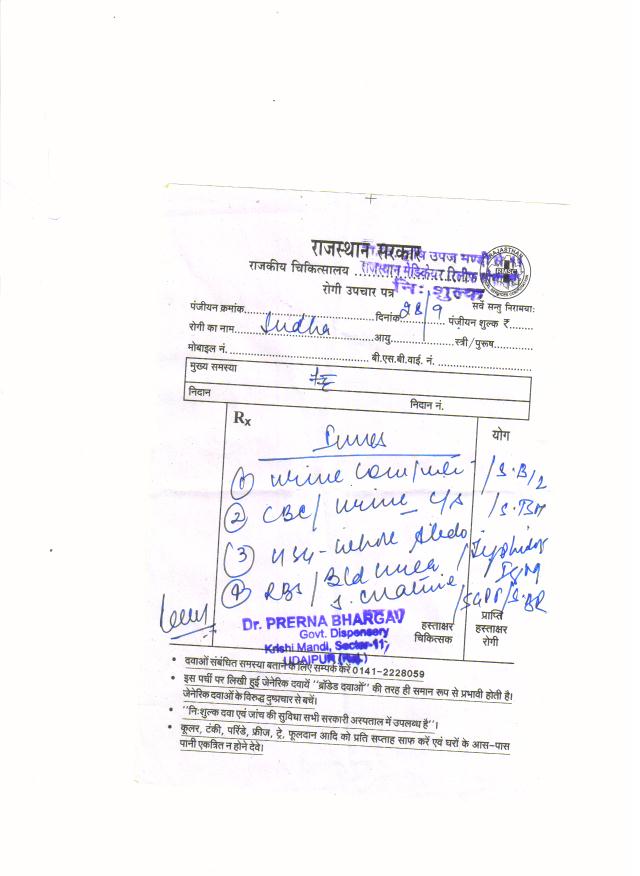 राजस्थान सरकार
उपज मण्डी से.11
RAJASTHAN
राजकीय चिकित्सालय राजस्थान मेडिकेयर रिलीफ
रोगी उपचार पत्र निःशुल्क
सर्वे सन्तु निरामयाः
पंजीयन क्रमांक दिनांक 28/9 पंजीयन शुल्क ₹
रोगी का नाम Sudha आयु स्त्री/पुरूष
मोबाइल नं. बी.एस.बी.वाई. नं.
मुख्य समस्या
निदान निदान नं.
Rx योग
① urine complete
② CBC/ urine C/S
③ USG-whole Abdo
④ RBS / Bld urea
Dr. PRERNA BHARGAV
Govt. Dispensery
Krishi Mandi, Sector-11,
UDAIPUR (Raj.)
हस्ताक्षर
चिकित्सक
प्राप्ति
हस्ताक्षर
रोगी
• दवाओं संबंधित समस्या बताने के लिए सम्पर्क करें 0141-2228059
• इस पर्ची पर लिखी हुई जेनेरिक दवायें "ब्रॉंडेड दवाओं" की तरह ही समान रूप से प्रभावी होती है।
जेनेरिक दवाओं के विरुद्ध दुष्प्रचार से बचें।
• "निःशुल्क दवा एवं जांच की सुविधा सभी सरकारी अस्पताल में उपलब्ध है"।
• कूलर, टंकी, परिंडे, फ्रीज, ट्रे, फूलदान आदि को प्रति सप्ताह साफ करें एवं घरों के आस-पास
पानी एकत्रित न होने देवे।